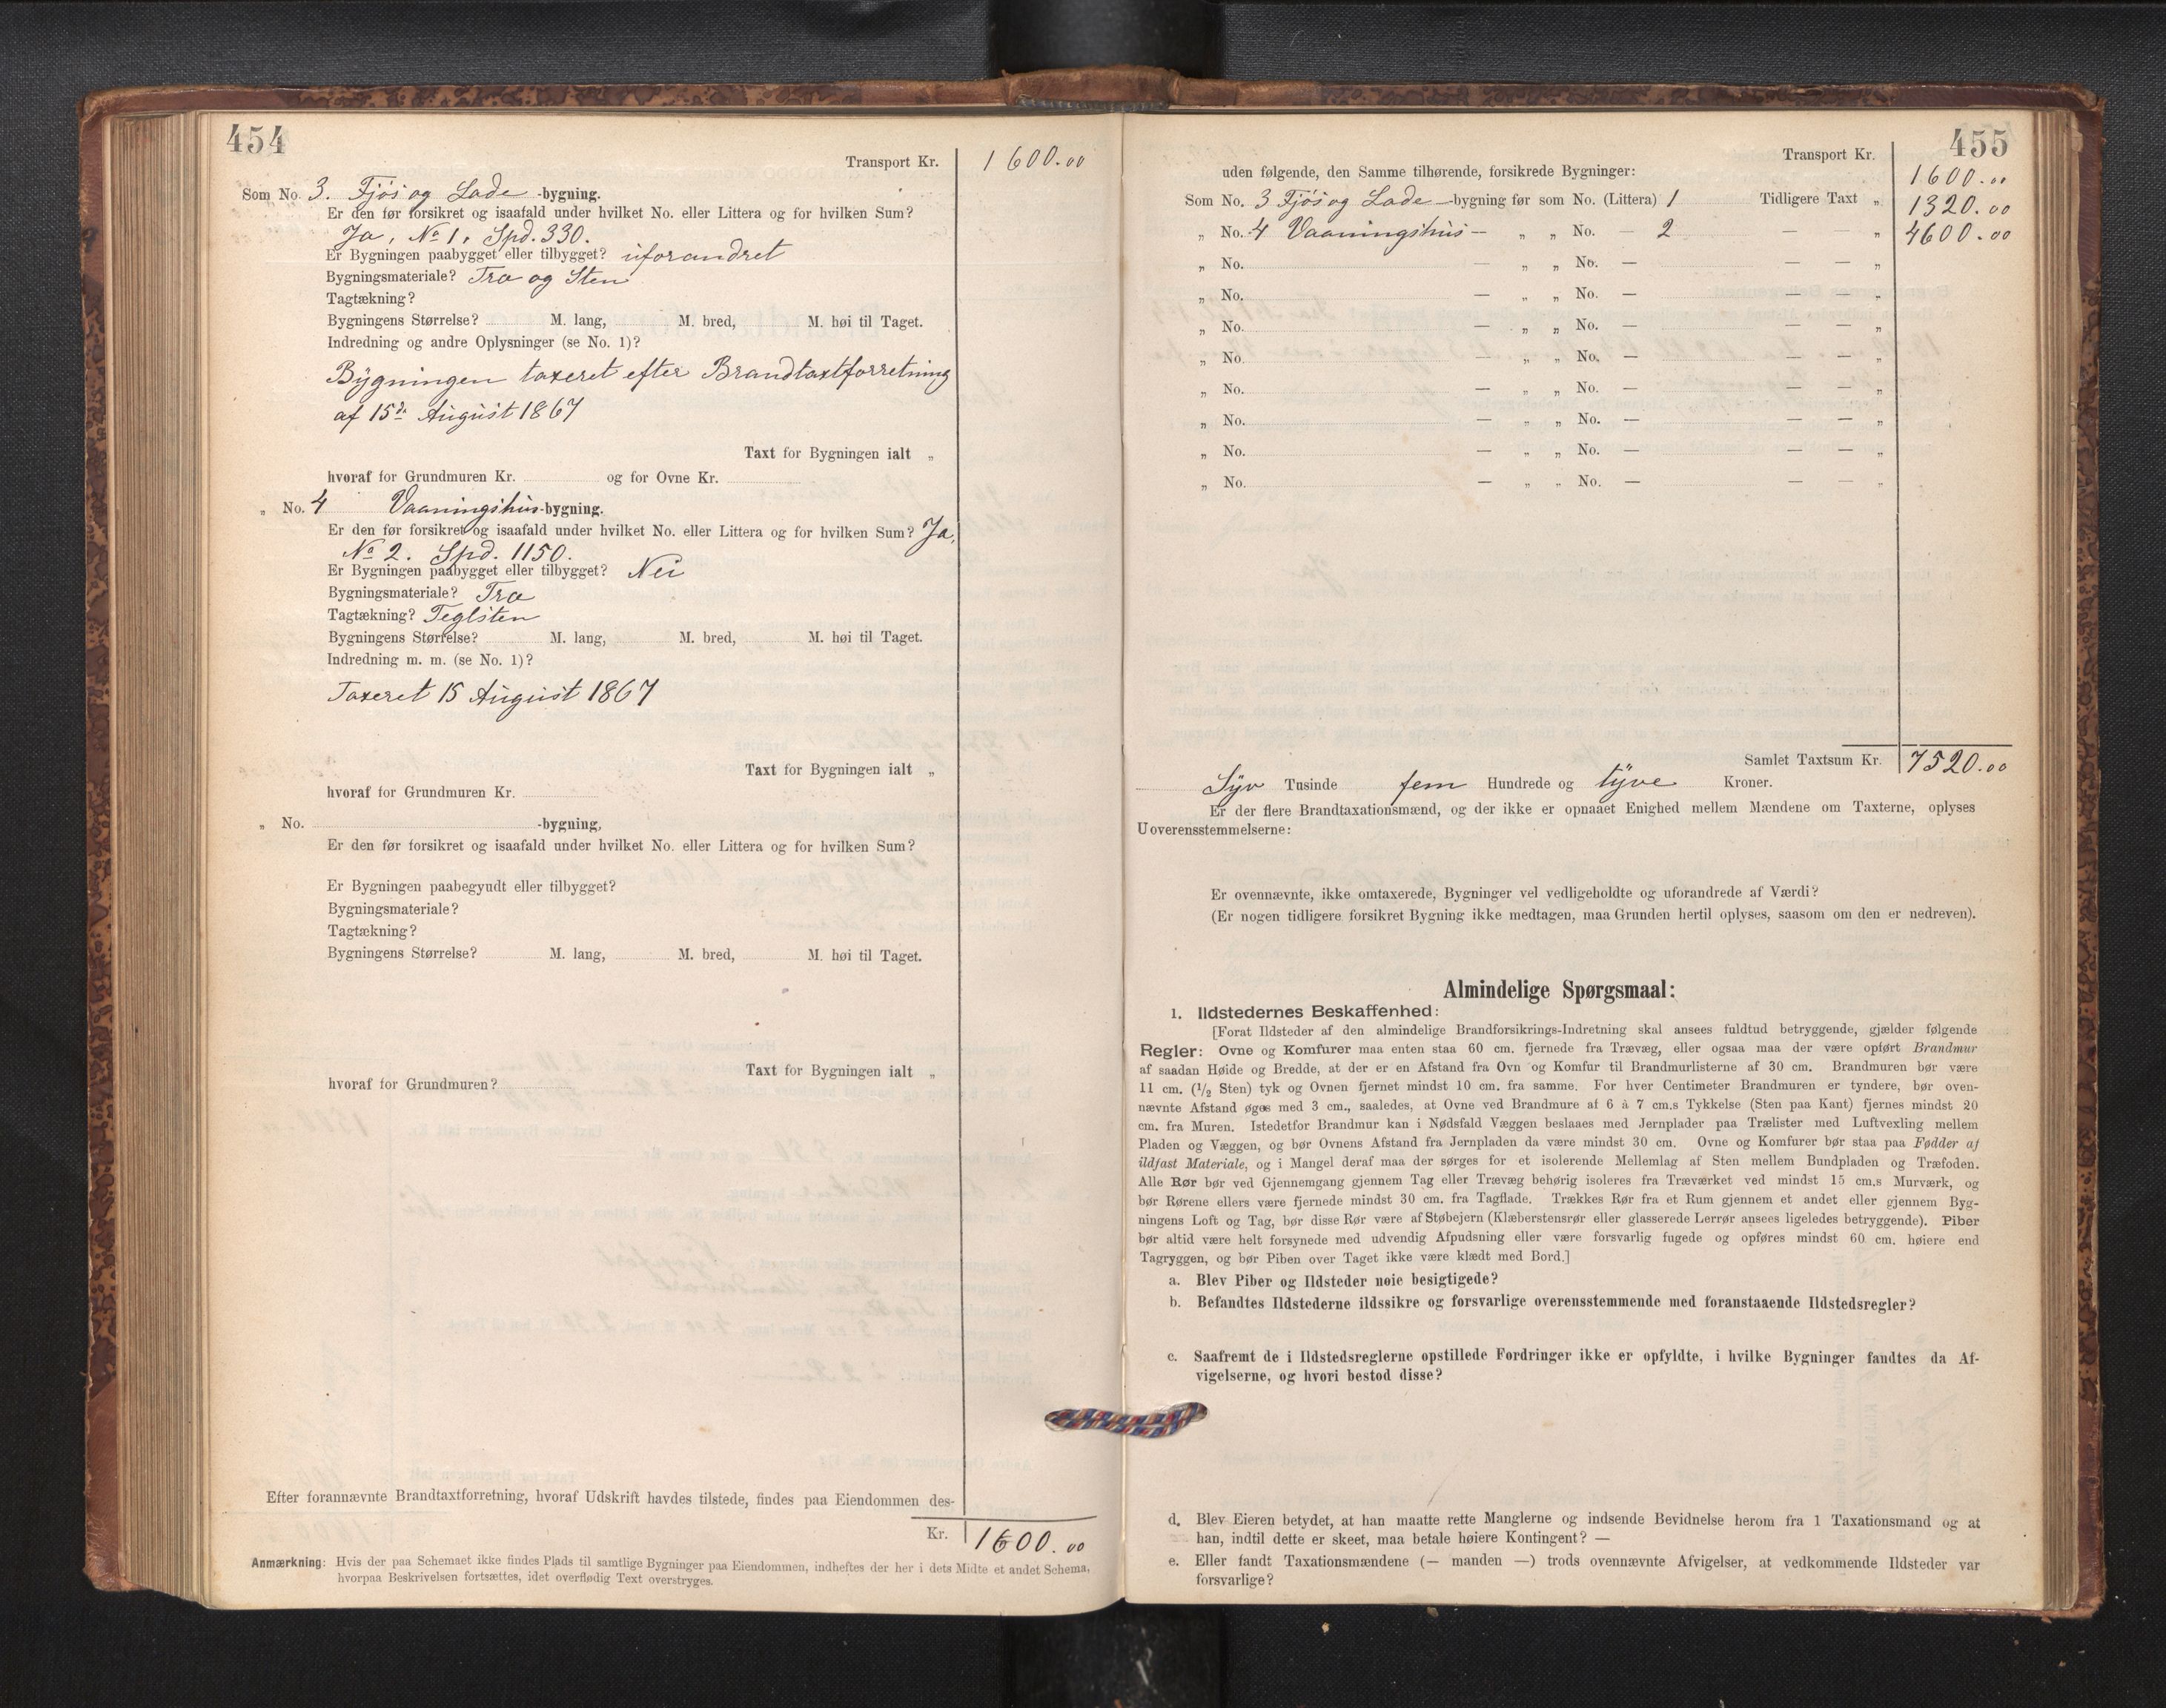 454
Transport Kr. 1600.00
Som No. 3. Fjøs og Lade -bygning.
Er den før forsikret og isaafald under hvilket No. eller Littera og for hvilken Sum?
Ja, No 1, Spd. 330.
Er Bygningen paabygget eller tilbygget? uforandret
Bygningsmateriale? Træ og Sten
Tagtækning?
Bygningens Størrelse? M. lang, M. bred, M. høi til Taget.
Indredning og andre Oplysninger (se No. 1)?
Bygningen taxeret efter Brandtaxtforretning
af 15de August 1867
Taxt for Bygningen ialt „
hvoraf for Grundmuren Kr. og for Ovne Kr.
„ No. 4 Vaaningshus-bygning.
Er den før forsikret og isaafald under hvilket No. eller Littera og for hvilken Sum? Ja,
No 2. Spd. 1150.
Er Bygningen paabygget eller tilbygget? Nei
Bygningsmateriale? Træ
Tagtækning? Teglsten
Bygningens Størrelse? M. lang, M. bred, M. høi til Taget.
Indredning m. m. (se No. 1)?
Taxeret 15 August 1867
Taxt for Bygningen ialt „
hvoraf for Grundmuren Kr.
„ No. -bygning,
Er den før forsikret og isaafald under hvilket No. eller Littera og for hvilken Sum?
Er Bygningen paabegyudt eller tilbygget?
Bygningsmateriale?
Tagtækning?
Bygningens Størrelse? M. lang, M. bred, M. høi til Taget.
Taxt for Bygningen ialt „
hvoraf for Grundmuren?
Efter forannævnte Brandtaxtforretning, hvoraf Udskrift havdes tilstede, findes paa Eiendommen des-
Kr. 1600.00
Anmærkning: Hvis der paa Schemaet ikke findes Plads til samtlige Bygninger paa Eiendommen, indheftes der her i dets Midte et andet Schema,
hvorpaa Beskrivelsen fortsættes, idet overflødig Text overstryges.
455
Transport Kr. 1600.00
uden følgende, den Samme tilhørende, forsikrede Bygninger:
Som No. 3 Fjøs og Lade -bygning før som No. (Littera) 1 Tidligere Taxt „ 1320.00
„ No. 4 Vaaningshus — „ „ No. — 2 — — „ 4600.00
„ No. — „ „ No. — — — „
„ No. — „ „ No. — — — „
„ No. — „ „ No. — — — „
„ No. — „ „ No. — — — „
„ No. — „ „ No. — — — „
„ No. — „ „ No. — — — „
„ No. — „ „ No. — — — „
„ No. — „ „ No. — — — „
Samlet Taxtsum Kr. 7520.00
Syv Tusinde fem Hundrede og tyve Kroner.
Er der flere Brandtaxationsmænd, og der ikke er opnaaet Enighed mellem Mændene om Taxterne, oplyses
Uoverensstemmelserne:
Er ovennævnte, ikke omtaxerede, Bygninger vel vedligeholdte og uforandrede af Værdi?
(Er nogen tidligere forsikret Bygning ikke medtagen, maa Grunden hertil oplyses, saasom om den er nedreven).
Almindelige Spørgsmaal:
1. Ildstedernes Beskaffenhed:
[Forat Ildsteder af den almindelige Brandforsikrings-Indretning skal ansees fuldtud betryggende, gjælder følgende
Regler: Ovne og Komfurer maa enten staa 60 cm. fjernede fra Trævæg, eller ogsaa maa der være opført Brandmur
af saadan Høide og Bredde, at der er en Afstand fra Ovn og Komfur til Brandmurlisterne af 30 cm. Brandmuren bør være
11 cm. (1/2 Sten) tyk og Ovnen fjernet mindst 10 cm. fra samme. For hver Centimeter Brandmuren er tyndere, bør oven-
nævnte Afstand øges med 3 cm., saaledes, at Ovne ved Brandmure af 6 à 7 cm.s Tykkelse (Sten paa Kant) fjernes mindst 20
cm. fra Muren. Istedetfor Brandmur kan i Nødsfald Væggen beslaaes med Jernplader paa Trælister med Luftvexling mellem
Pladen og Væggen, og bør Ovnens Afstand fra Jernpladen da være mindst 30 cm. Ovne og Komfurer bør staa paa Fødder af
ildfast Materiale, og i Mangel deraf maa der sørges for et isolerende Mellemlag af Sten mellem Bundpladen og Træfoden.
Alle Rør bør ved Gjennemgang gjennem Tag eller Trævæg behørig isoleres fra Træværket ved mindst 15 cm.s Murværk, og
bør Rørene ellers være fjernede mindst 30 cm. fra Tagflade. Trækkes Rør fra et Rum gjennem et andet eller gjennem Byg-
ningens Loft og Tag, bør disse Rør være af Støbejern (Klæberstensrør eller glasserede Lerrør ansees ligeledes betryggende). Piber
bør altid være helt forsynede med udvendig Afpudsning eller være forsvarlig fugede og opføres mindst 60 cm. høiere end
Tagryggen, og bør Piben over Taget ikke være klædt med Bord.]
a. Blev Piber og Ildsteder nøie besigtigede?
b. Befandtes Ildstederne ildssikre og forsvarlige overensstemmende med foranstaaende Ildstedsregler?
c. Saafremt de i Ildstedsreglerne opstillede Fordringer ikke er opfyldte, i hvilke Bygninger fandtes da Af-
vigelserne, og hvori bestod disse?
d. Blev Eieren betydet, at han maatte rette Manglerne og indsende Bevidnelse herom fra 1 Taxationsmand og at
han, indtil dette er skeet, maa betale høiere Kontingent? —
e. Eller fandt Taxationsmændene (— manden —) trods ovennævnte Afvigelser, at vedkommende Ildsteder var
forsvarlige?